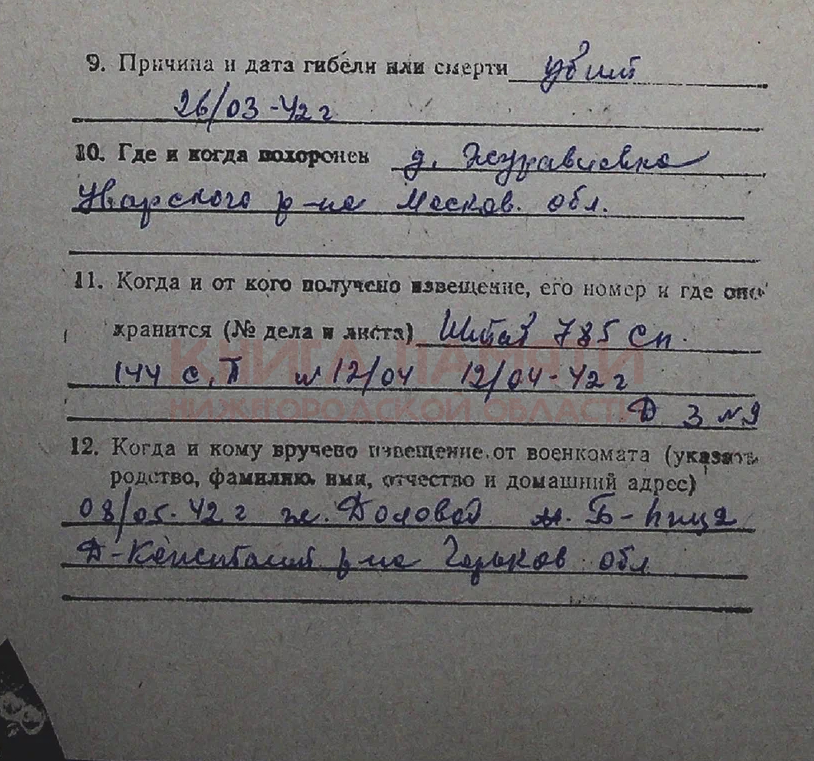 9. Причина и дата гибели или смерти убит
26/03-42 г
10. Где и когда похоронен д. Журавлевка
Уварского р-на Москов. обл.
11. Когда и от кого получено извещение, его номер и где оно
хранится (№ дела и листа) Штаб 785 сп.
КНИГА ПАМЯТИ
144 с.д №12/04 12/04-42 г
НИЖЕГОРОДСКОЙ ОБЛАСТИ
Д 3 № 9
12. Когда и кому вручено извещение от военкомата (указать
родство, фамилию, имя, отчество и домашний адрес)
08/05-42 г ж. Б-
Д-Констант р-на Горьков обл